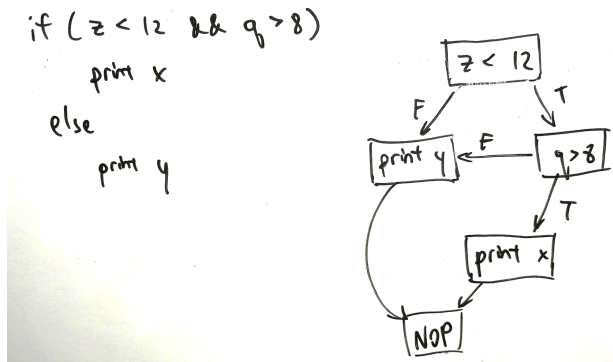 if (z < 12 && q > 8)
print x
else
print y
z < 12
F
T
print y
F
q > 8
T
print x
NOP